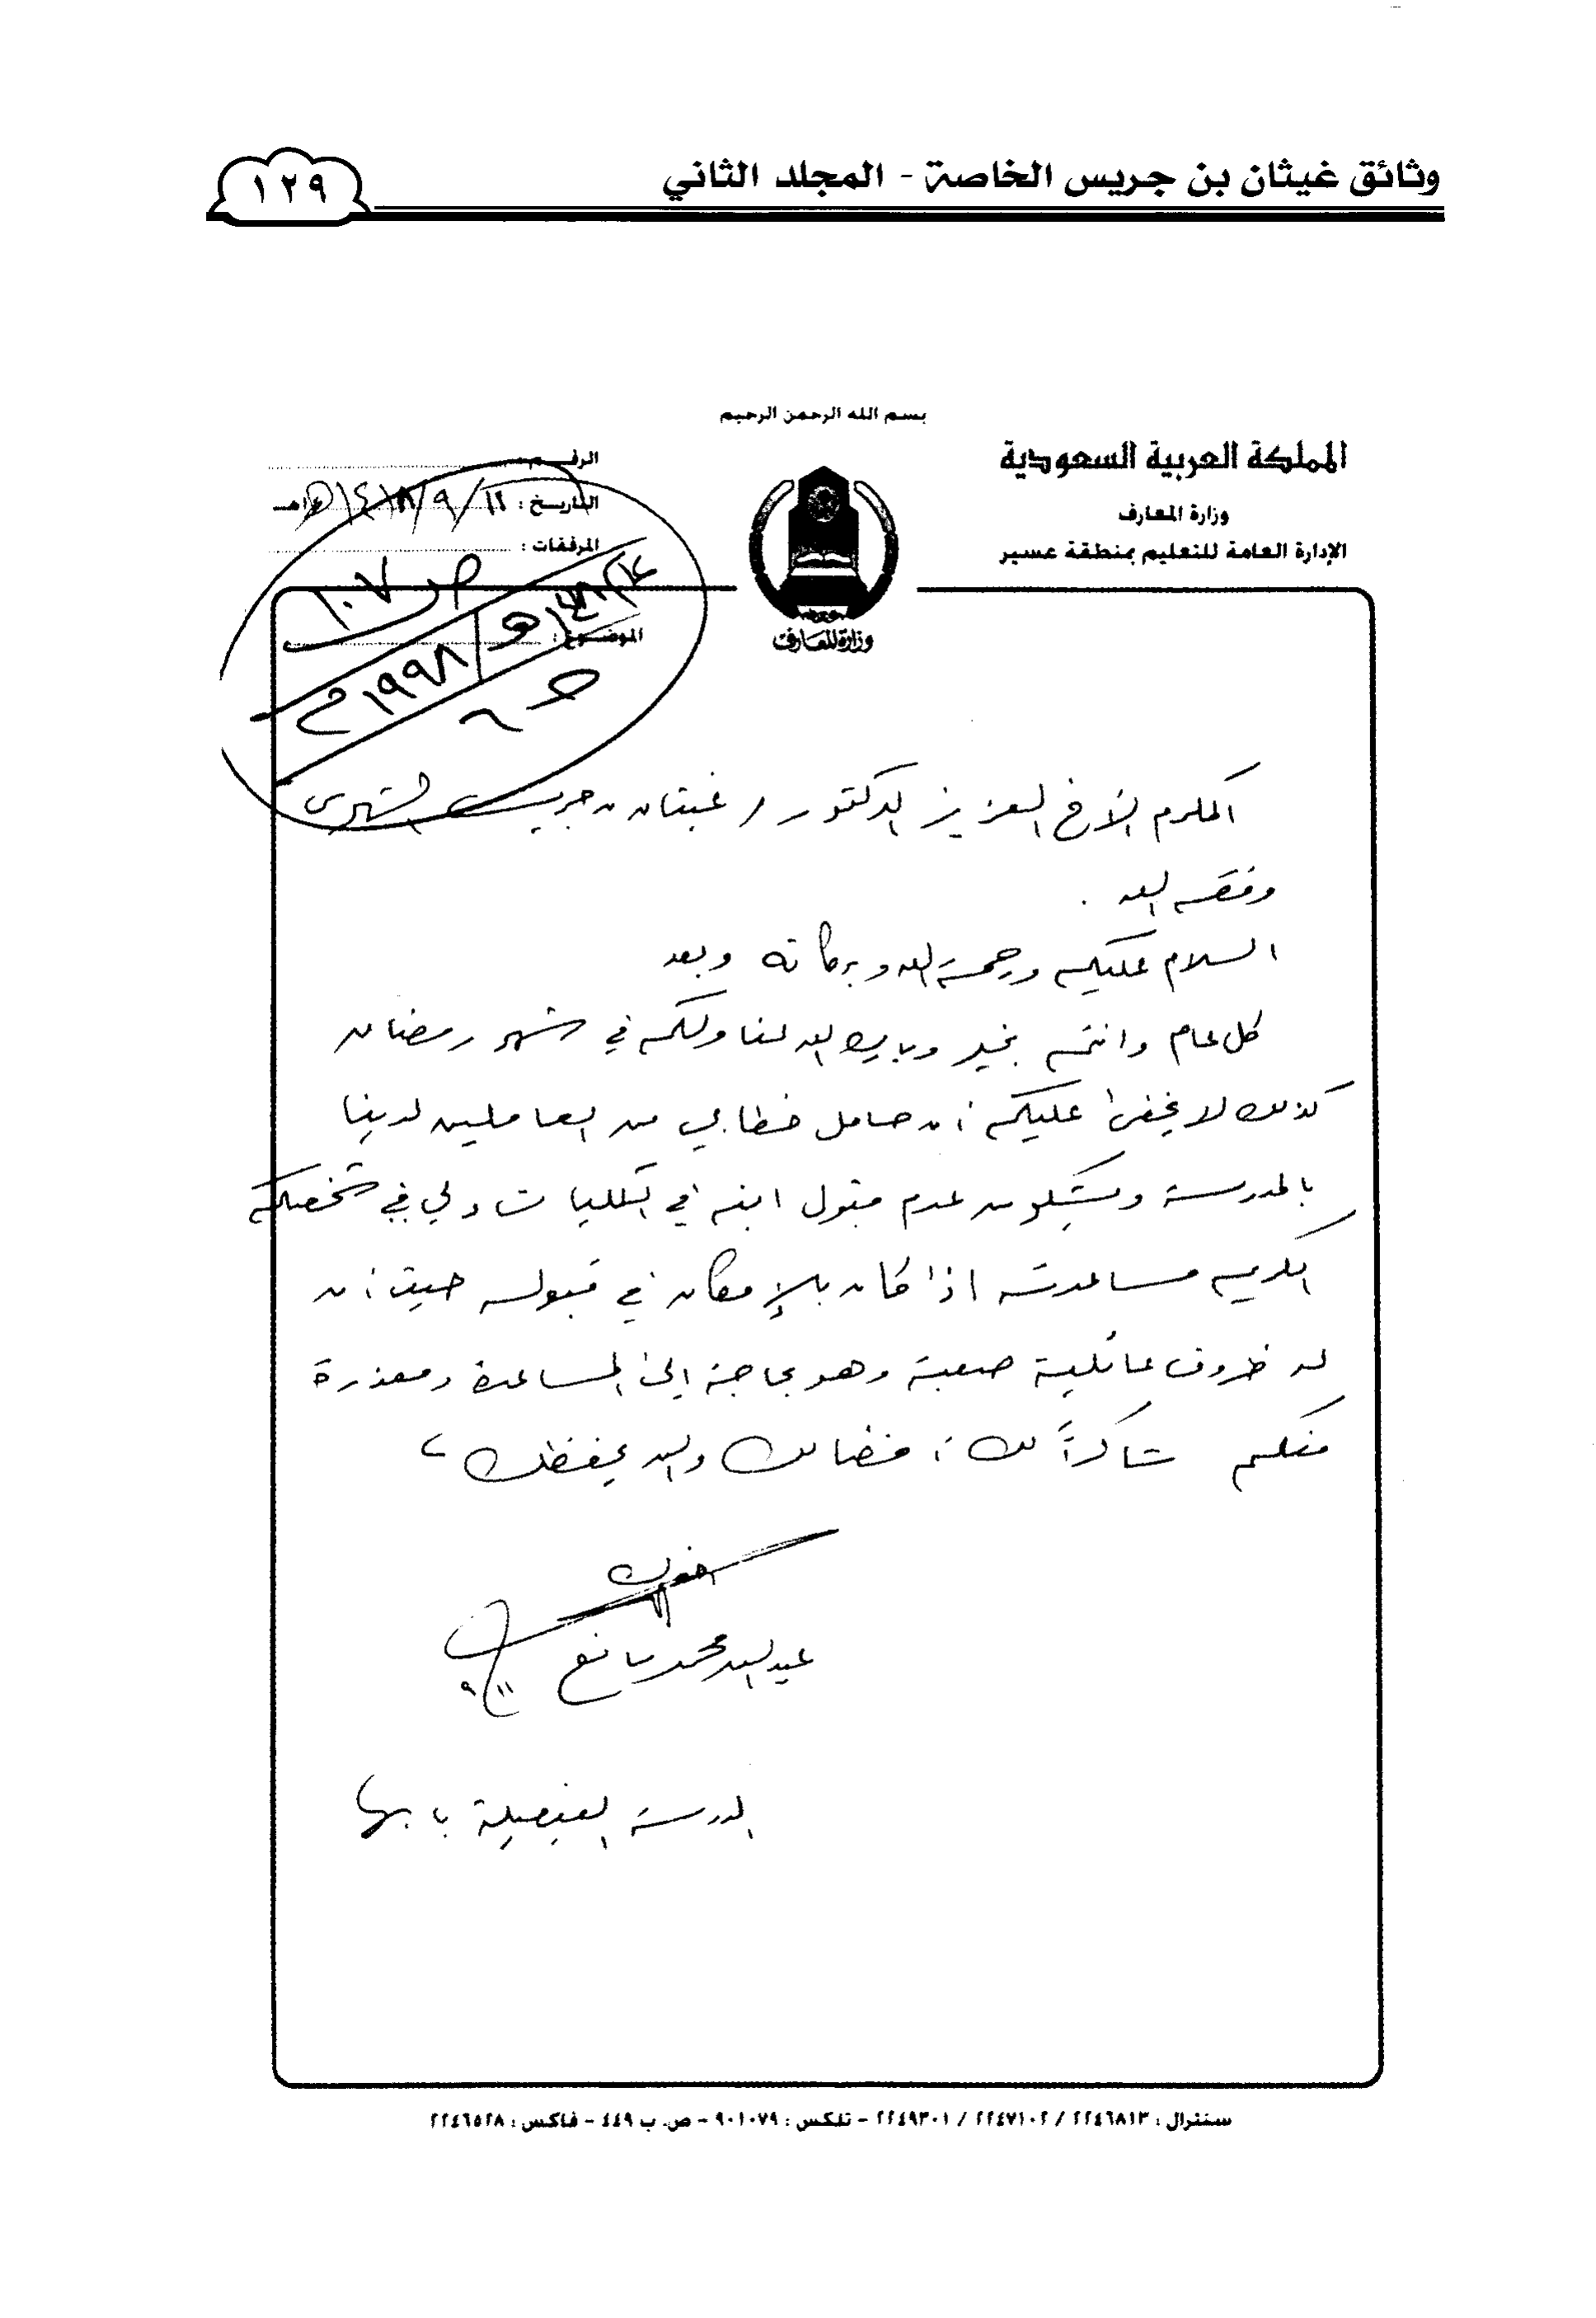 وثائق غيثان بن جريس الخاصة - المجلد الثاني
١٢٩
بسم الله الرحمن الرحيم
المملكة العربية السعودية
وزارة المعارف
الإدارة العامة للتعليم بمنطقة عسير
وزارة المعارف
الرقم
التاريخ : ١٤١٨/٩/١٢هـ
المرفقات :
الموضوع :
ص ١٠٧
١٩٩٨م
المكرم الأخ العزيز الدكتور / غيثان بن جريس الشهري
وفقه الله .
السلام عليكم ورحمة الله وبركاته وبعد
كل عام وانتم بخير وبارك الله لنا ولكم في شهر رمضان
كذلك لا يخفى عليكم أن حامل خطابي من العاملين لدينا
بالمدرسة ويشكو من عدم قبول ابنه في الكليات ولي في شخصكم
الكريم مساعدته اذا كان بالإمكان في قبوله حيث أن
له ظروف عائلية صعبة وهو بحاجة إلى المساعدة ومعذرة
منكم شاكراً لك أفضالك والله يحفظك
اخوك
عبدالله محمد مانع
٩/١١
المدرسة الفيصلية بابها
سنترال : ٢٢٤٦٨١٣ / ٢٢٤٧١٠٢ / ٢٢٤٩٣٠١ - تلكس : ٩٠١٠٧٩ - ص. ب ٤٤٩ - فاكس : ٢٢٤٦٥٢٨